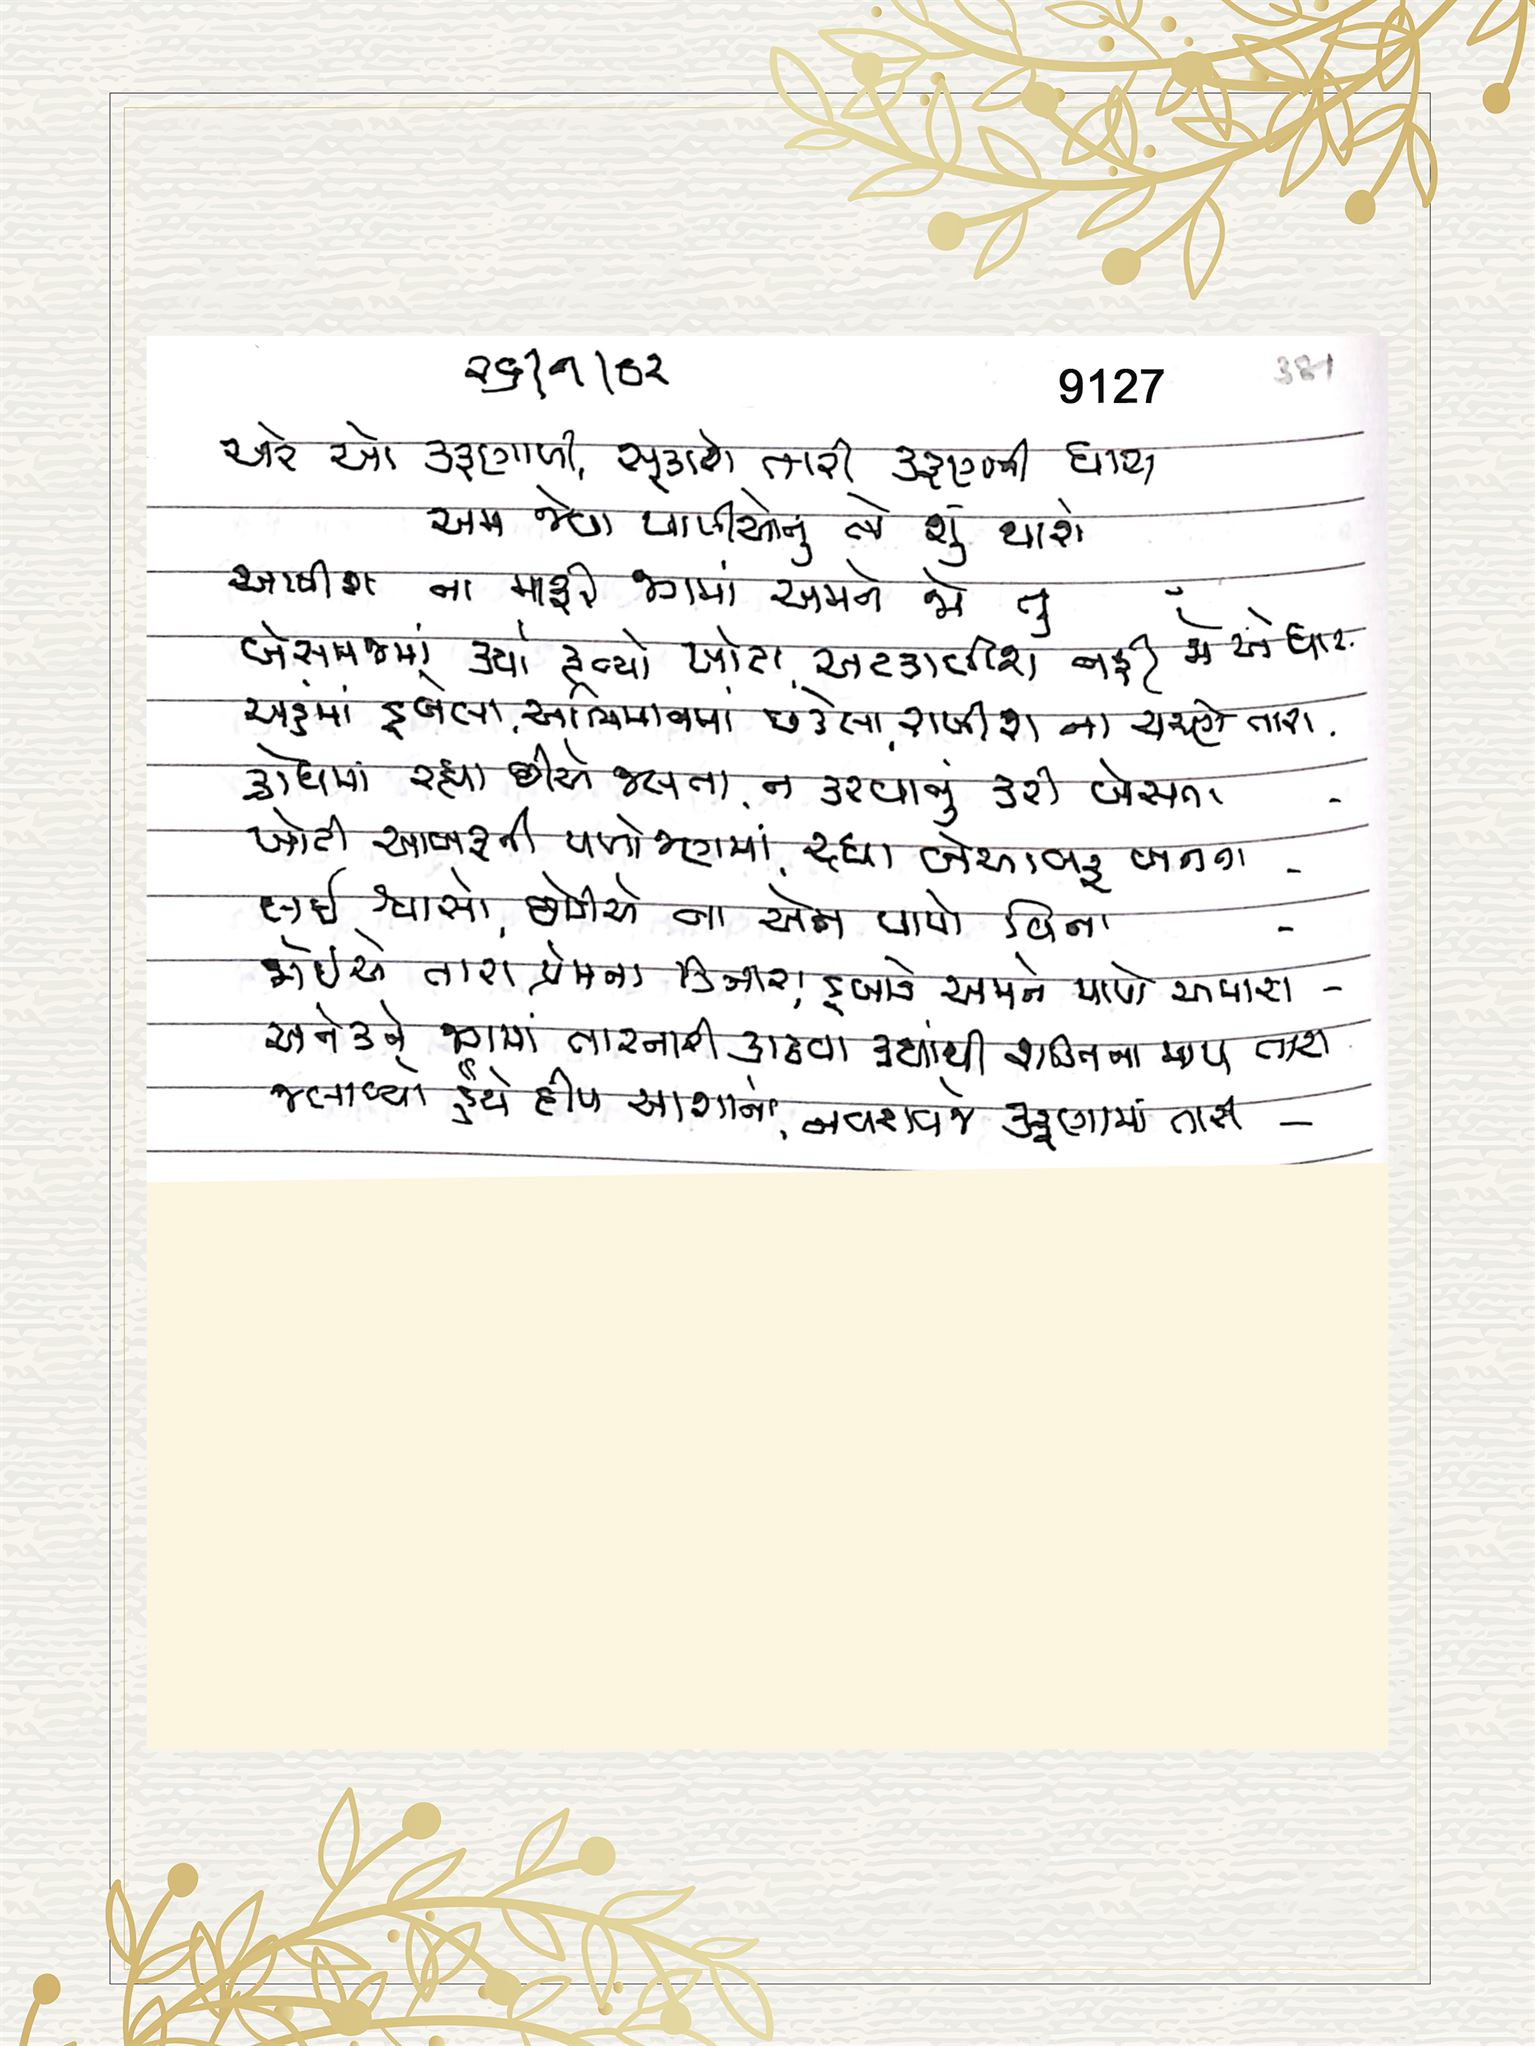 9127
381
અરે ઓ કરૂણાળી, સૂકાશે તારી કરૂણાની ધારા
અમ જેવા પાપીઓનું ત્યે શું થાશે
આપીશ ના માફી જગમાં અમને જો તું
બેસમજમાં કર્યા કૃત્યો ખોટા, અટકાવીશ નહીં જો એ ધારા
અહંમાં ડૂબેલા, અભિમાનમાં છકેલા, રાખીશ ના ચરણે તારા.
ક્રોધમાં રહ્યા છીએ જલતા, ન કરવાનું કરી બેસતા -
ખોટી આબરૂની પળોજણમાં, રહ્યા બેઆબરૂ બનતા -
લઈ શ્વાસો, છોડીએ ના એને પાપો વિના -
જોઈએ તારા પ્રેમના કિનારા, ડૂબાડે અમને પાપો અમારા -
અનેકને જગમાં તારનારી કાઢવા ક્યાંથી શક્તિના માપ તારા
જલાવ્યો હૈયે દીપ આશાનો, નવરાવજે કરૂણામાં તારી -